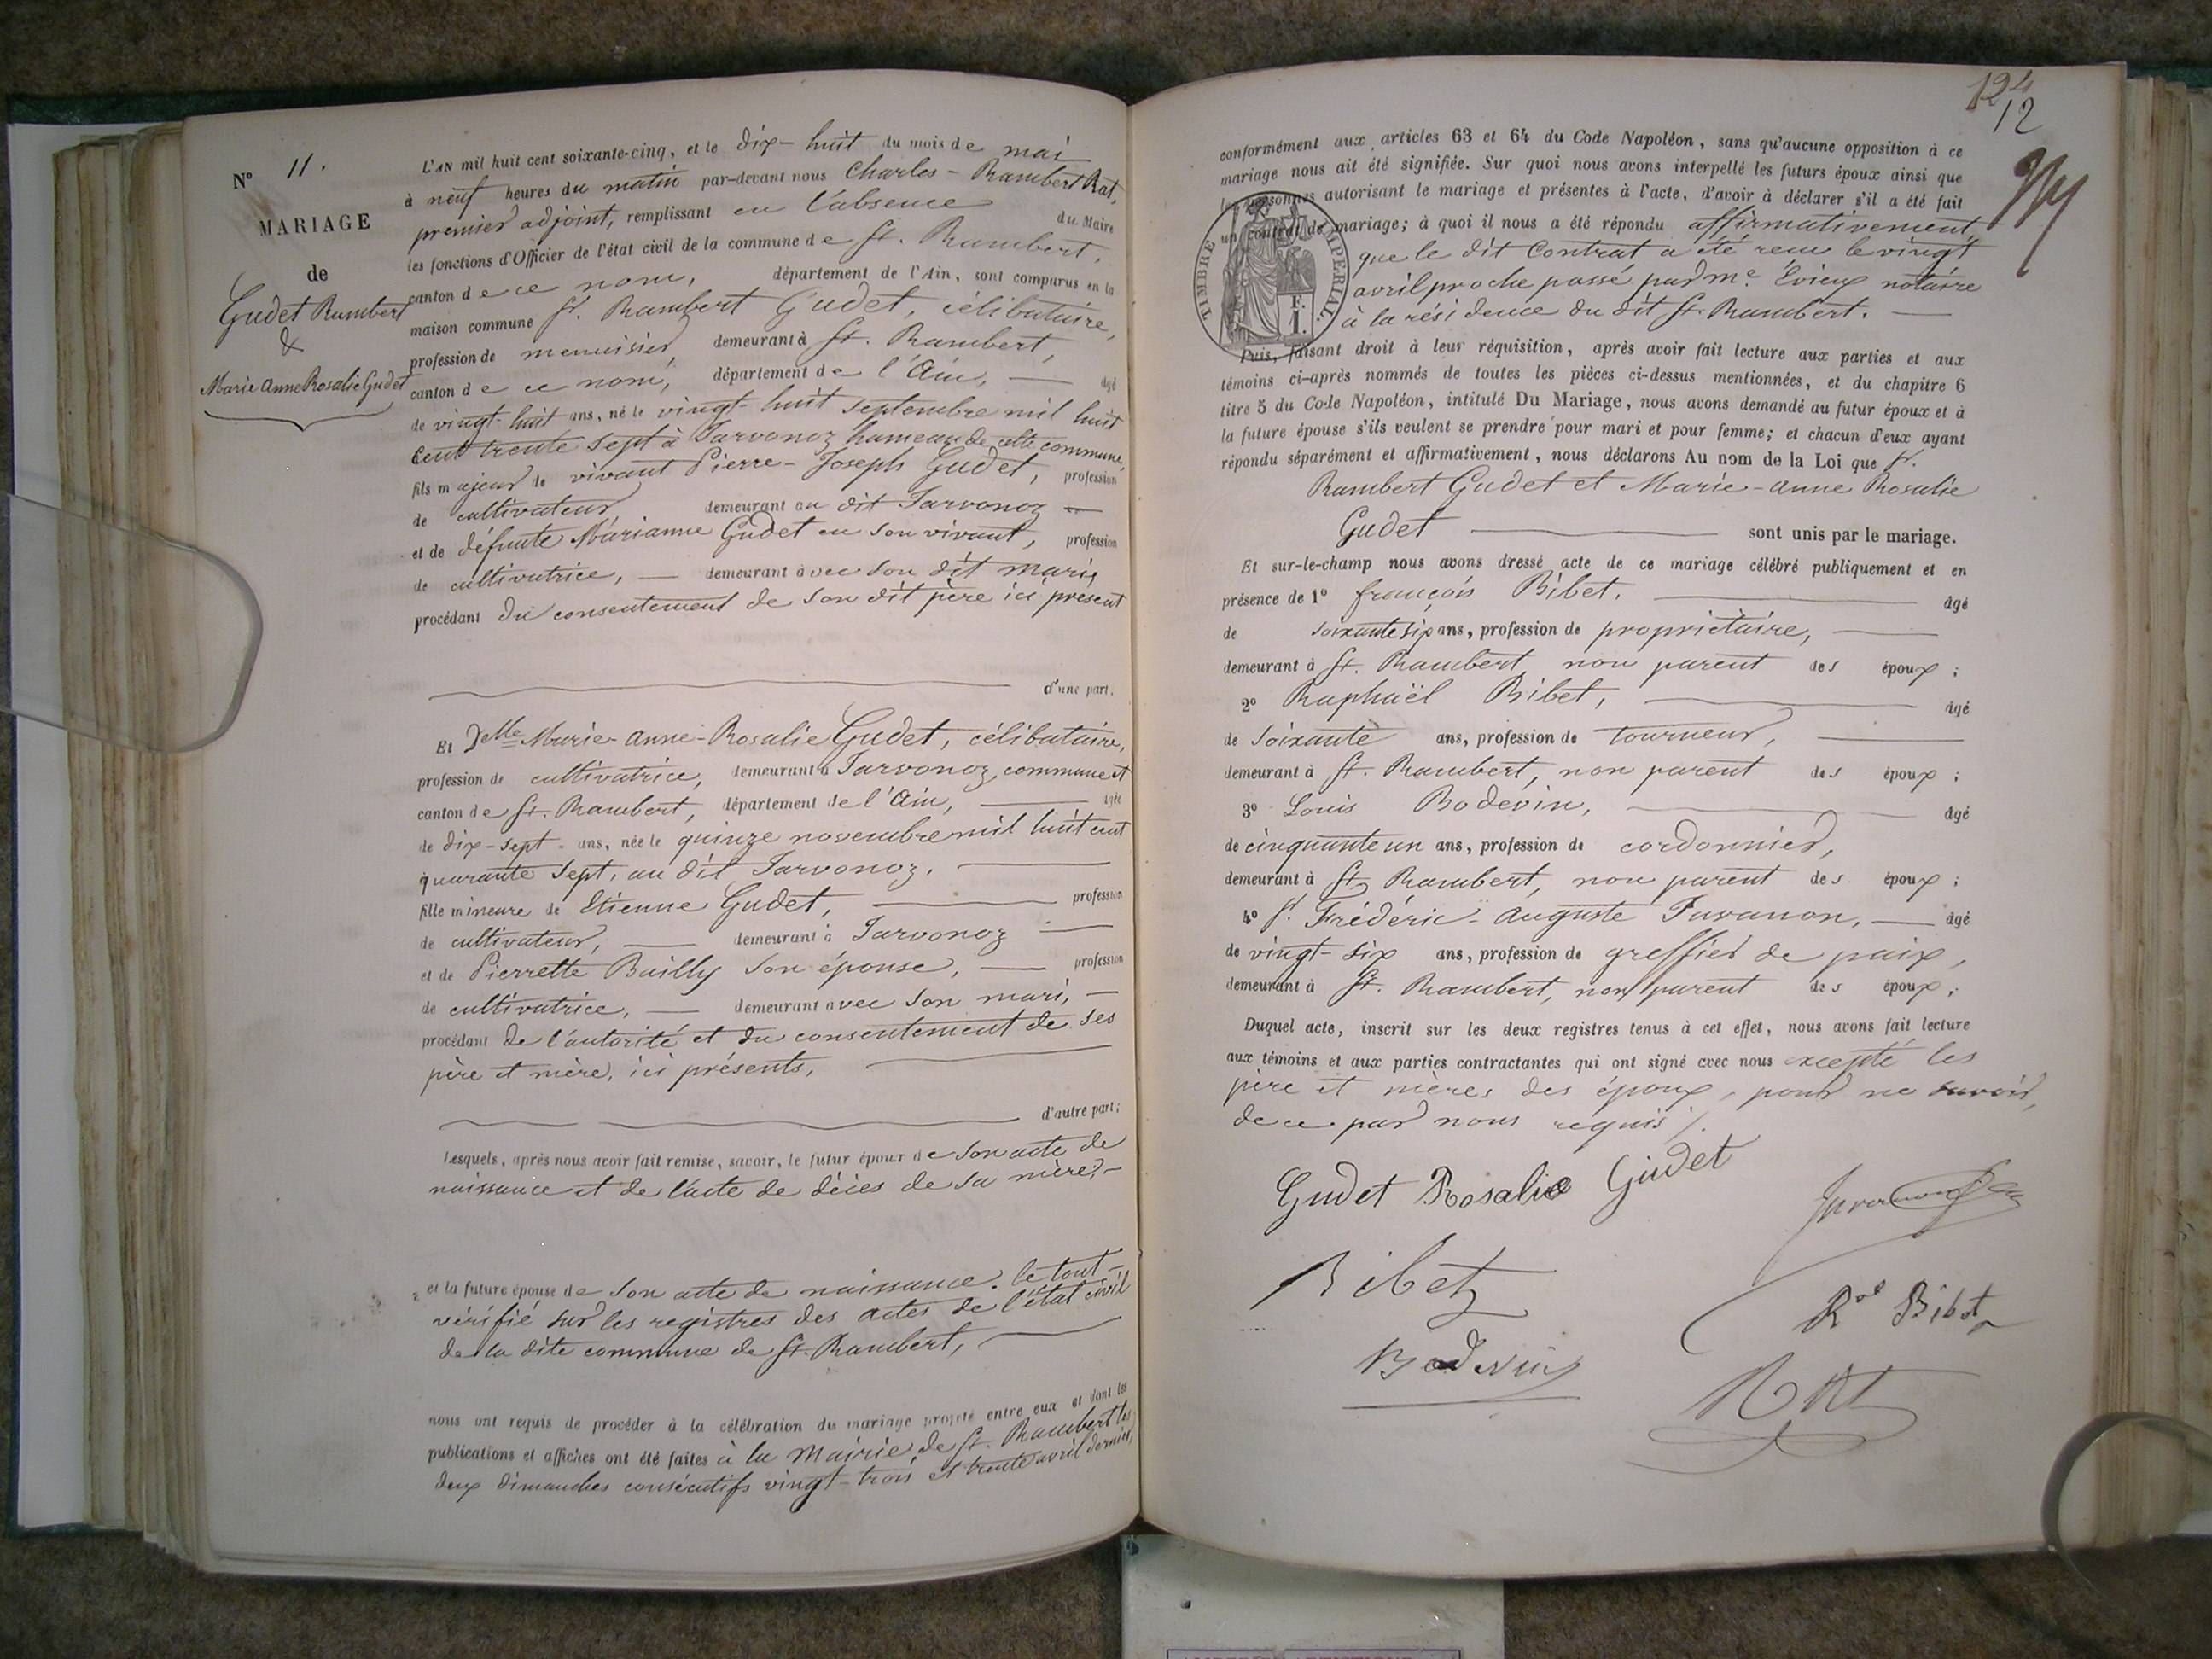 N° 11.
MARIAGE
de
Gudet Rambert
&
Marie Anne Rosalie Gudet
L'AN mil huit cent soixante-cinq, et le dix-huit du mois de mai
à neuf heures du matin par-devant nous Charles-Rambert Rat,
premier adjoint, remplissant en l'absence du Maire
les fonctions d'Officier de l'état civil de la commune de St. Rambert,
canton de ce nom, département de l'Ain, sont comparus en la
maison commune Sr. Rambert Gudet, célibataire,
profession de menuisier, demeurant à St. Rambert,
canton de ce nom, département de l'Ain, — âgé
de vingt-huit ans, né le vingt-huit septembre mil huit
cent trente sept à Javonoz hameau de cette commune,
fils majeur de vivant Pierre-Joseph Gudet, profession
de cultivateur, demeurant au dit Javonoz —
et de défunte Marianne Gudet en son vivant, profession
de cultivatrice, — demeurant avec son dit mari,
procédant du consentement de son dit père ici présent
d'une part.
Et Delle Marie-Anne-Rosalie Gudet, célibataire,
profession de cultivatrice, demeurant à Javonoz, commune et
canton de St. Rambert, département de l'Ain, — âgée
de dix-sept ans, née le quinze novembre mil huit cent
quarante sept, au dit Javonoz, —
fille mineure de Etienne Gudet, — profession
de cultivateur, — demeurant à Javonoz —
et de Pierrette Bailly son épouse, — profession
de cultivatrice, — demeurant avec son mari, —
procédant de l'autorité et du consentement de ses
père et mère, ici présents, —
d'autre part;
Lesquels, après nous avoir fait remise, savoir, le futur époux de son acte de
naissance et de l'acte de décès de sa mère, —
et la future épouse de son acte de naissance. le tout —
vérifié sur les registres des actes de l'état civil
de la dite commune de St. Rambert, —
nous ont requis de procéder à la célébration du mariage projeté entre eux et dont les
publications et affiches ont été faites à la Mairie de St. Rambert les
deux dimanches consécutifs vingt-trois et trente avril dernier,
124
12
conformément aux articles 63 et 64 du Code Napoléon, sans qu'aucune opposition à ce
mariage nous ait été signifiée. Sur quoi nous avons interpellé les futurs époux ainsi que
les personnes autorisant le mariage et présentes à l'acte, d'avoir à déclarer s'il a été fait
un contrat de mariage; à quoi il nous a été répondu affirmativement
que le dit contrat a été reçu le vingt
avril proche passé par me. Evieux notaire
à la résidence du dit St. Rambert. —
TIMBRE IMPERIAL
F.
1.
Puis, faisant droit à leur réquisition, après avoir fait lecture aux parties et aux
témoins ci-après nommés de toutes les pièces ci-dessus mentionnées, et du chapitre 6
titre 5 du Code Napoléon, intitulé Du Mariage, nous avons demandé au futur époux et à
la future épouse s'ils veulent se prendre pour mari et pour femme; et chacun d'eux ayant
répondu séparément et affirmativement, nous déclarons Au nom de la Loi que Sr.
Rambert Gudet et Marie-Anne Rosalie
Gudet — sont unis par le mariage.
Et sur-le-champ nous avons dressé acte de ce mariage célébré publiquement et en
présence de 1° françois Bibet, — âgé
de soixante six ans, profession de propriétaire, —
demeurant à St. Rambert, non parent des époux;
2° Raphaël Bibet, — âgé
de soixante ans, profession de tourneur, —
demeurant à St. Rambert, non parent des époux;
3° Louis Bodevin, — âgé
de cinquante un ans, profession de cordonnier,
demeurant à St. Rambert, non parent des époux;
4° Sr. Frédéric-Auguste Juvanon, — âgé
de vingt-six ans, profession de greffier de paix,
demeurant à St. Rambert, non parent des époux;
Duquel acte, inscrit sur les deux registres tenus à cet effet, nous avons fait lecture
aux témoins et aux parties contractantes qui ont signé avec nous excepté les
père et mères des époux, pour ne savoir,
de ce par nous requis ./.
Gudet Rosalie Gudet
Juvanon
Bibet
Rel Bibet
Bodevin
Rat